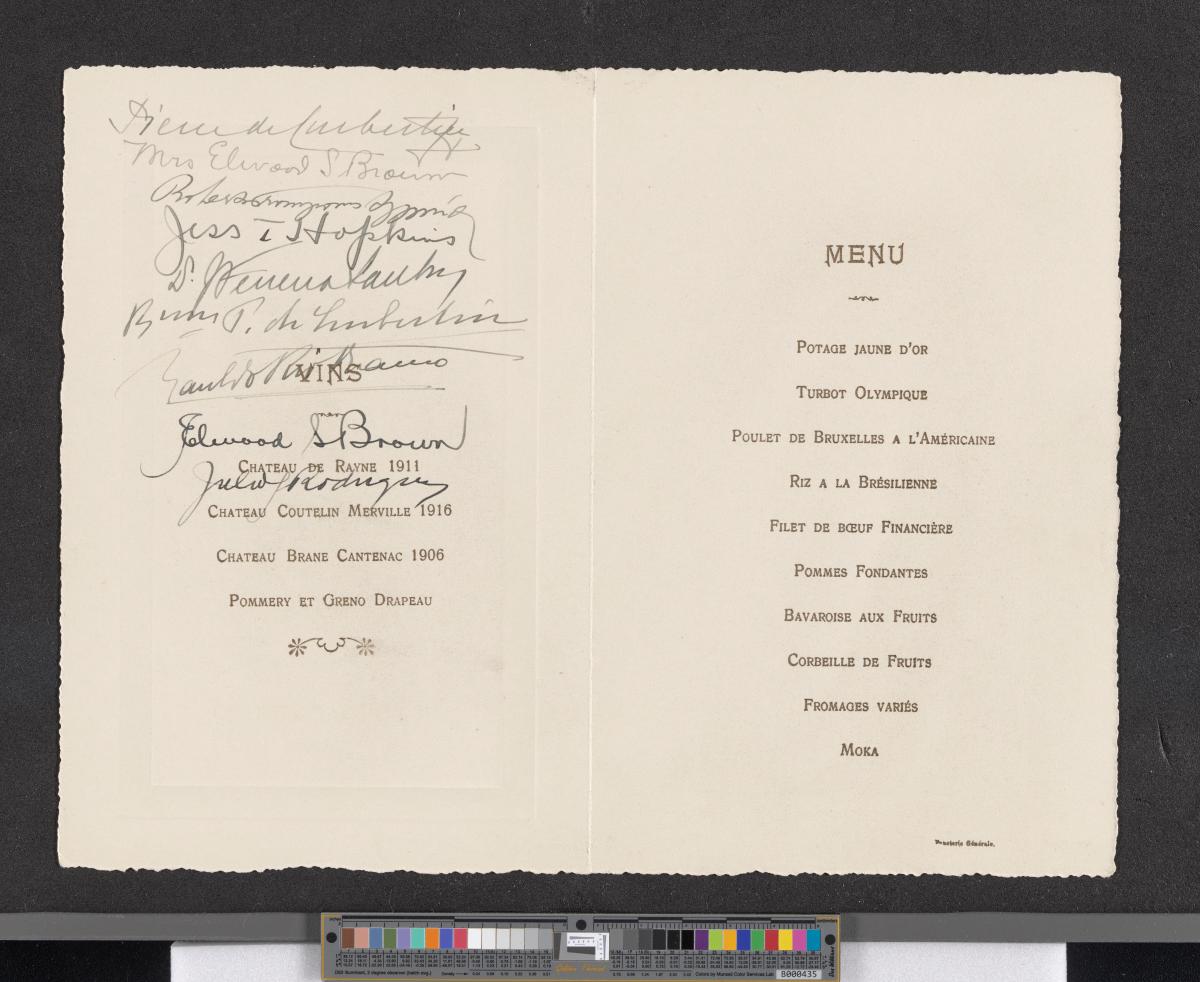 Pierre de Coubertin
Mrs Elwood S Brown
Jess T Hopkins
Dr.
P. de Coubertin
VINS
Elwood S Brown
CHATEAU DE RAYNE 1911
Julio J Rodriguez
CHATEAU COUTELIN MERVILLE 1916
CHATEAU BRANE CANTENAC 1906
POMMERY ET GRENO DRAPEAU
MENU
POTAGE JAUNE D'OR
TURBOT OLYMPIQUE
POULET DE BRUXELLES A L'AMÉRICAINE
RIZ A LA BRÉSILIENNE
FILET DE BŒUF FINANCIÈRE
POMMES FONDANTES
BAVAROISE AUX FRUITS
CORBEILLE DE FRUITS
FROMAGES VARIÉS
MOKA
Générale.
Colors by Munsell Color Services Lab
B000435